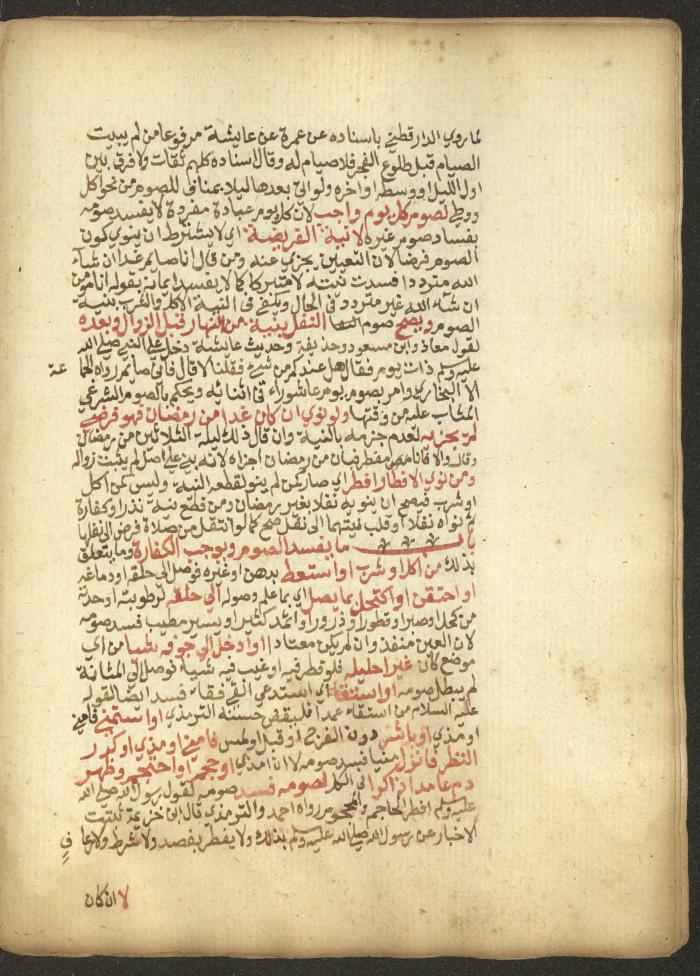 لما روي الدارقطني باسناده عن عمرة عن عايشة مرفوعا من لم يبيت
الصيام قبل طلوع الفجر فلا صيام له وقال اسناده كلهم ثقات ولا فرق بين
اول الليل او وسطه او اخره ولو اتى بعدها ليلا بمناف للصوم من نحو اكل
ووطئ لصوم كل يوم واجب لان كل يوم عبادة مفردة لا يفسد صومه
بفساد صوم غيره لا نية الفريضة اي لا يشترط ان ينوي كون
الصوم فرضا لان التعيين يجزي عنه ومن قال انا صايم غدا ان شاء
الله مترددا فسدت نيته لا متبركا كما لا يفسد ايمانه بقوله انا مومن
ان شاء الله غير متردد في الحال ويكفي في النية الاكل والشرب بنية
الصوم ويصح صوم النفل بنية من النهار قبل الزوال وبعده
لقول معاذ وابن مسعود وحذيفة وحديث عايشة دخل علي النبي صلى الله
عليه وسلم ذات يوم فقال هل عندكم من شيء فقلنا لا قال فاني صايم رواه الجماعة
الا البخاري وامر بصوم يوم عاشوراء في اثنائه ويحكم بالصوم الشرعي
المثاب عليه من وقتها ولو نوي ان كان غدا من رمضان فهو فرضي
لم يجزيه لعدم جزمه بالنية وان قال ذلك ليلة الثلاثين من رمضان
وقال والا فانا مفطر فبان من رمضان اجزاه لانه بني على اصل لم يثبت زواله
ومن نوي الافطار افطر اي صار كمن لم ينو لقطعه النية وليس كمن اكل
او شرب فيصح ان ينويه نفلا بغير رمضان ومن قطع نية نذر او كفارة
ثم نواه نفلا او قلب نيتهما الى نفل صح كما لو انتقل من صلاة فرض الى نفلها
باب ما يفسد الصوم ويوجب الكفارة وما يتعلق
بذلك من اكل او شرب او استعط بدهن او غيره فوصل الى حلقه او دماغه
او احتقن او اكتحل بما يصل اي بما علم وصوله الي حلقه لرطوبته او حدته
من كحل او صبر او قطور او ذرور او اثمد كثير او يسير مطيب فسد صومه
لان العين منفذ وان لم يكن معتادا او ادخل الي جوفه شيا من اي
موضع كان غير احليله فلو قطر فيه او غيب فيه شيا فوصل الى المثانة
لم يبطل صومه او استقاء اي استدعى القيء فقاء فسد ايضا لقوله
عليه السلام من استقاء عمدا فليقض حسنه الترمذي او استمني فامني
او مذي او باشر دون الفرج او قبل او لمس فامني او مذي او كرر
النظر فانزل منيا فسد صومه لا ان امذي او حجم او احتجم وظهر
دم عامدا ذاكرا في الكل لصومه فسد صومه لقول رسول الله صلى الله
عليه وسلم افطر الحاجم والمحجوم رواه احمد والترمذي قال ابن خزيمة ثبتت
الاخبار عن رسول الله صلى الله عليه وسلم بذلك ولا يفطر بفصد ولا شرط ولا رعاف
لا ان كان